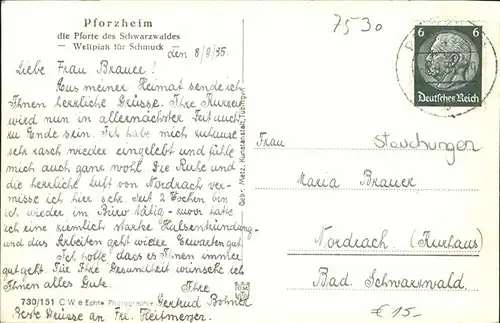 Pforzheim
die Pforte des Schwarzwaldes
— Weltplatz für Schmuck
den 8/9/35.
Liebe Frau Brauer!
Aus meiner Heimat sende ich
Ihnen herzliche Grüsse. Ihre Kurzeit
wird nun in allernächster Zeit auch
zu Ende sein. Ich habe mich zuhause
sehr rasch wieder eingelebt und fühle
mich auch ganz wohl. Die Ruhe und
die herrliche Luft von Nordrach ver-
misse ich hier sehr. Seit 2 Wochen bin
ich wieder im Büro tätig – zuvor hatte
ich eine ziemlich starke Halsentzündung –
und das Arbeiten geht wider Erwarten gut.
Ich hoffe, dass es Ihnen immer
gut geht. Für Ihre Gesundheit wünsche ich
Ihnen alles Gute.
Ihre
Gertrud Bohnet
730/151 C W e Echte Photographie
Beste Grüsse an Frl. Heitmesser.
Gebr. Metz, Kunstanstalt, Tübingen
7530
6 6
Deutsches Reich
Frau
Stauchungen
Maria Brauer
Nordrach. (Kurhaus)
Bad. Schwarzwald.
€ 15-